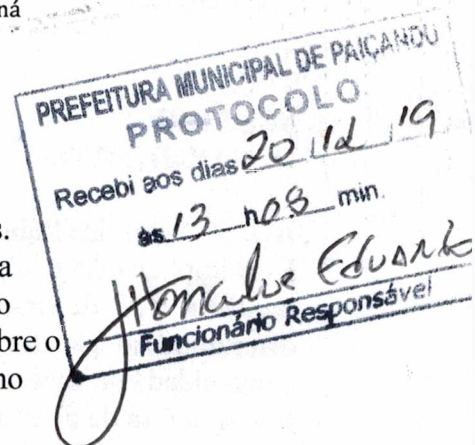 ná
PREFEITURA MUNICIPAL DE PAIÇANDU
PROTOCOLO
Recebi aos dias 20 12 19
às 13 h 08 min.
Eduardo
Funcionário Responsável
s.
a
o
bre o
no